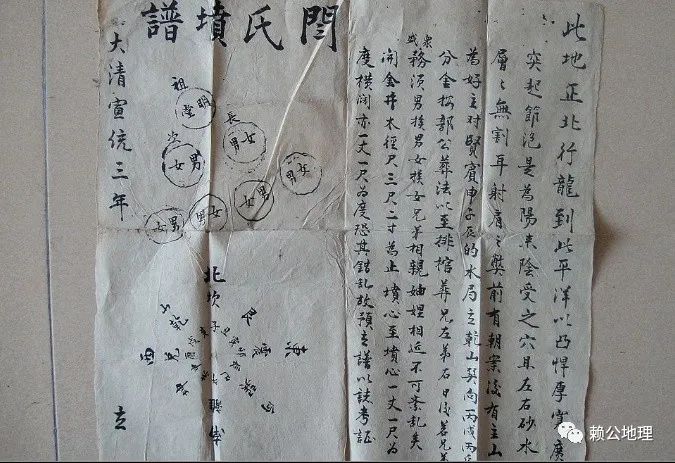 此地正北行龍到此平洋以凸悍厚寬廣
突起節泡是為陽來陰受之穴且左右砂水
層々無割耳射肩之弊前有朝案後有主山
為好主对賢賓申子辰的水局立乾山巽向丙戌丙辰
分金按部公葬法以至排棺葬兄左弟右日後若兄弟
衆盛
務須男挨男女挨女兄弟相親妯娌相近不可紊乱矣
開金井木徑尺三尺二寸為止墳心至墳心一丈一尺為
度橫闊亦一丈一尺為度恐其錯乱故預立譜以誌考証
閆氏墳譜
祖
明堂
長
男女
次
男女
男女
男女
男女
男女
北坎
艮
震
東
巽
兌
西
乾
大清宣統三年
立
赖公地理